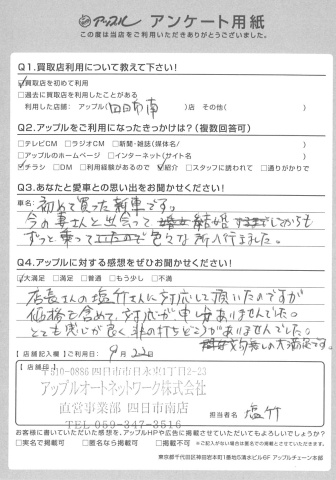 アップル アンケート用紙
この度は当店をご利用いただきありがとうございました。
Q1.買取店利用について教えて下さい!
□買取店を初めて利用
□過去に買取店を利用したことがある
利用した店舗: アップル(四日市南)店 その他( )
Q2.アップルをご利用になったきっかけは?(複数回答可)
□テレビCM □ラジオCM □新聞・雑誌(媒体名/ )
□アップルのホームページ □インターネット(サイト名 )
□チラシ □DM □利用経験があるので □紹介 □スタッフに誘われて □通りがかりで
Q3.あなたと愛車との思い出をお聞かせください!
車名: 初めて買った新車です。
今の妻さんと出会って 結婚 してからも
ずっと乗っていたので色々な所へ行きました。
Q4.アップルに対する感想をぜひお聞かせください!
□大満足 □満足 □普通 □もう少し □不満
店長さんの塩竹さんに対応して頂いたのですが
価格も含めて、対応が申し分ありませんでした。
とても感じが良く非の打ちどころがありませんでした。
文句無しの大満足です。
【店舗記入欄】ご利用日: 9月22日
【店舗印】
〒510-0886 四日市市日永東1丁目2-23
アップルオートネットワーク株式会社
直営事業部 四日市南店
TEL 059-347-3516
担当者名 塩竹
お客様に書いていただいた感想を、アップルHPや広告に掲載させていただいてもよろしいでしょうか?
□実名で掲載可 □匿名なら掲載可 □掲載不可 ※ご記入がない場合は匿名での掲載とさせていただきます。
東京都千代田区神田岩本町1番地5清水ビル6F アップルチェーン本部